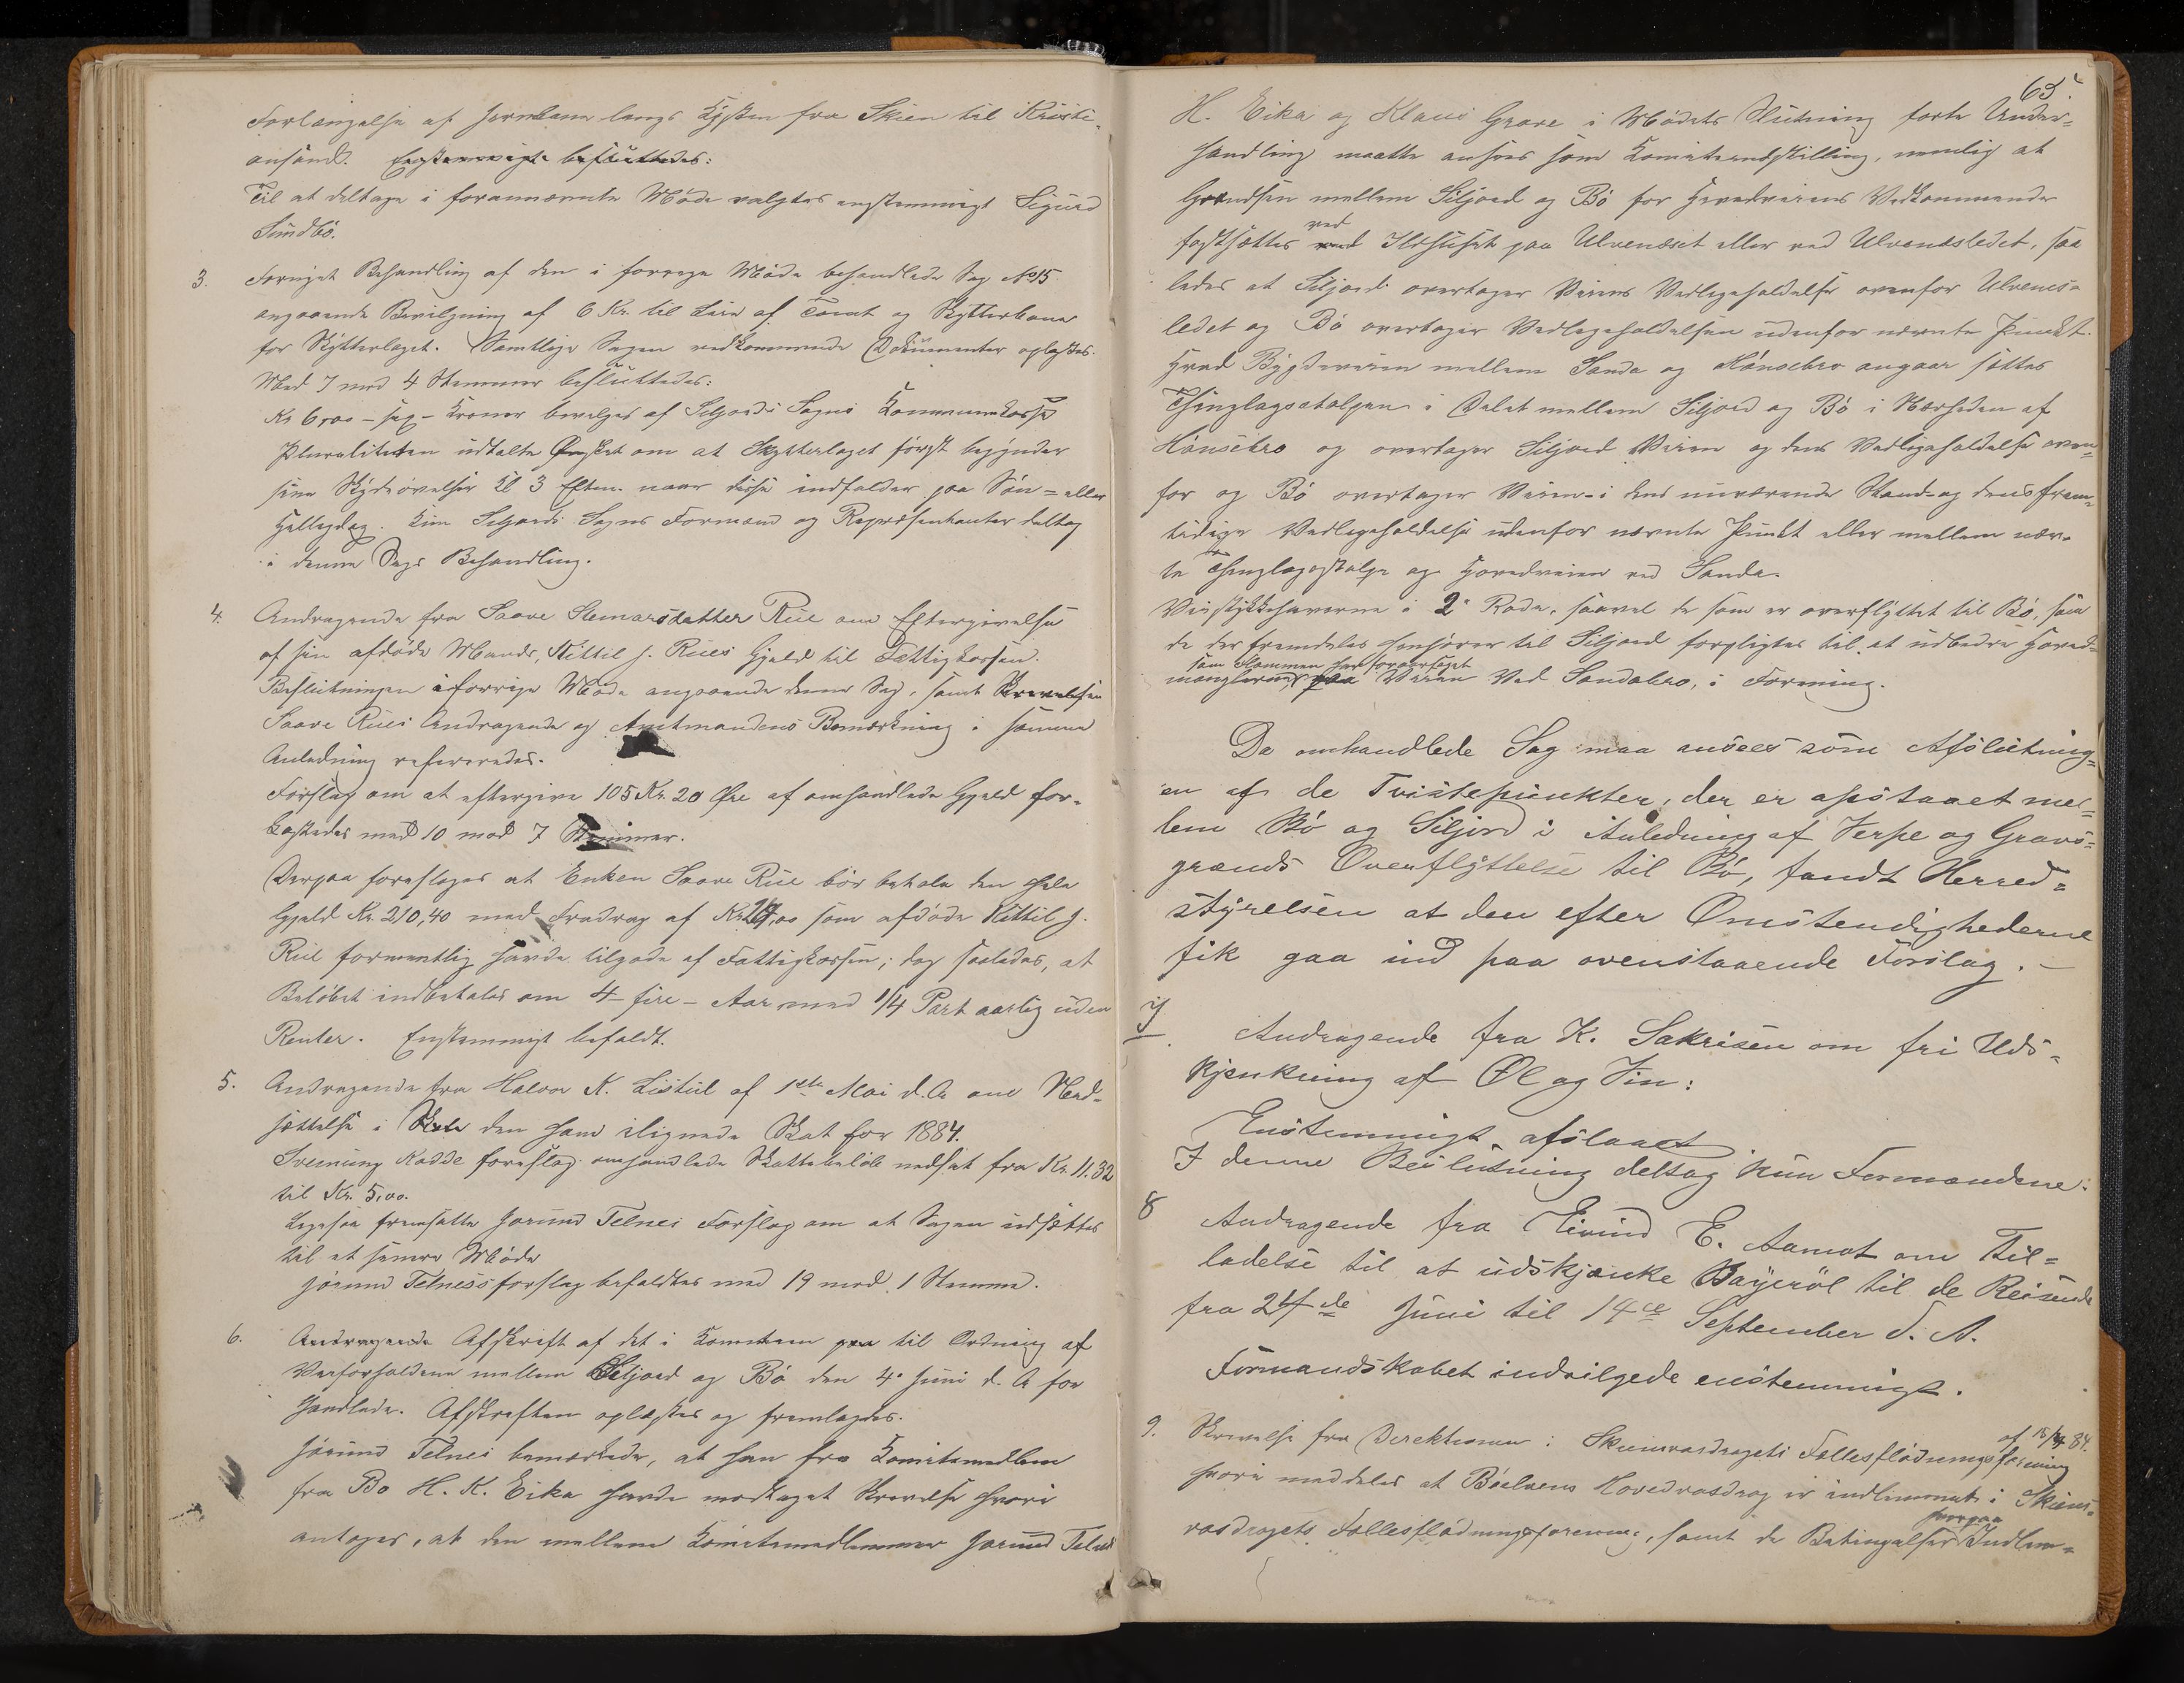 Forlængelse af Jernbane langs Kysten fra Skien til Kristi-
ansand. Enstemmigt besluttedes:
Til at deltage i forannævnte Møde valgtes enstemmigt Sigurd
Sundbö.
3. Fornyet Behandling af den i forrige Møde behandlede Sag No 15
angaaende Bevilgning af 6 Kr. til Leie af Tomt og Skytterbane
for Skytterlaget. Samtlige Sagen vedkommende Dokumenter oplæstes.
Med 7 mod 4 Stemmer besluttedes:
Kr 6,00 - sex - Kroner bevilges af Seljords Sogns Kommunekasse
Pluraliteten udtalte Ønsket om at Skytterlaget först begynder
sine Skydeövelser Kl 3 Efterm. naar disse indfalder paa Sön= eller
Helligdag. Kun Seljords Sogns Formænd og Repræsentanter deltog
i denne Sags Behandling.
4. Andragende fra Saave Steinarsdatter Rue om Eftergivelse
af sin afdöde Mands, Kittil J. Rues Gjæld til Fattigkassen.
Beslutningen i forrige Möde angaaende denne Sag, samt Skrivelse
Saave Rues Andragende og Amtmandens Bemærkning i samme
Anledning refereredes.
Forslag om at eftergive 105 Kr. 20 Øre af omhandlede Gjæld for-
kastedes med 10 mod 7 Stemmer.
Derpaa foresloges at Enken Saave Rue bör betale den hele
Gjæld Kr. 210,40 med Fradrag af Kr 19,00 som afdöde Kittil J.
Rue formentlig havde tilgode af Fattigkassen; dog saaledes, at
Belöbet indbetales om 4 - fire - Aar med 1/4 Part aarlig uden
Renter. Enstemmigt bifaldt.
5. Andragende fra Halvor K. Listul af 1ste Mai d. A om Ned-
sættelse i den ham ilignede Skat for 1884.
Sveinung Kodde foreslog omhandlede Skattebelöb nedsat fra Kr. 11.32
til Kr. 5,00.
Ligesaa fremsatte Jorund Telnes Forslag om at Sagen udsættes
til et senere Möde
Jörund Telness forslag bifaldtes med 19 mod 1 Stemme.
6. Andragende Afskrift af det i Komiteen paa til Ordning af
Veiforholdene mellem Seljord og Bö den 4. Juni d. A for
handlede. Afskriften oplæstes og fremlagdes.
Jörund Telnes bemærkede, at han fra Komitemedlem
fra Bö H. K. Eika havde modtaget Skrivelse hvori
antages, at den mellem Komitemedlemmer Jorund Telnes
65
H. Eika og Klaus Grave i Mödets Slutning förte Under=
handling maatte ansees som Komiteindstilling, nemlig at
Grændsen mellem Siljord og Bö for Hovedveiens Vedkommende
ved
fastsættes ved Ildhuset paa Ulvenæset eller ved Ulvenesledet, saa
ledes at Siljord overtager Veiens Vedligeholdelse ovenfor Ulvenes-
ledet og Bö overtager Vedligeholdelsen udenfor nævnte Punkt.
Hvad Bygdeveien mellem Sanda og Hönsebro angaar sættes
Thinglagsstolpen i Delet mellem Siljord og Bö i Nærheden af
Hönsebro og overtager Siljord Veien og dens Vedligeholdelse oven=
for og Bö overtager Veien - i dens nuværende Stand - og dens frem=
tidige Vedligeholdelse udenfor nævnte Punkt eller mellem nævn-
te Thinglagsstolpe og Hovedveien ved Sanda.
Veistykkehaverne i 2. Rode, saavel de som er overflyttet til Bö, som
de der fremdeles henhörer til Siljord forpligtes til at udbedre Hoved=
som Flommen har foraarsaget
manglerne, paa Veien ved Sandabro, i Forening.
Da omhandlede Sag maa ansees som Afslutning=
en af de Tvistepunkter, der er opstaaet mel=
lem Bö og Siljord i Anledning af Verpe og Gravs=
grænds Overflyttelse til Bö, fandt Herred=
styrelsen at den efter Omstendighederne
fik gaa ind paa ovenstaaende Forslag. -
7. Andragende fra K. Sakrisen om fri Uds=
kjenkning af Øl og Vin:
Enstemmigt afslaaet.
I denne Beslutning deltog kun Formændene.
8 Andragende fra Eivind E. Aamot om Til=
ladelse til at udskjænke Bayeröl til de Reisende
fra 24de Juni til 14de September d. A.
Formandskabet indvilgede enstemmigt.
9. Skrivelse fra Direktionen i Skiensvasdragets Fellesflödningsforening
af 15/4 84.
hvori meddeles at Böelvens Hovedvasdrag er indlemmet i Skiens=
hvorpaa
vasdragets Fællesflödningsforening, samt de Betingelser Indlem=